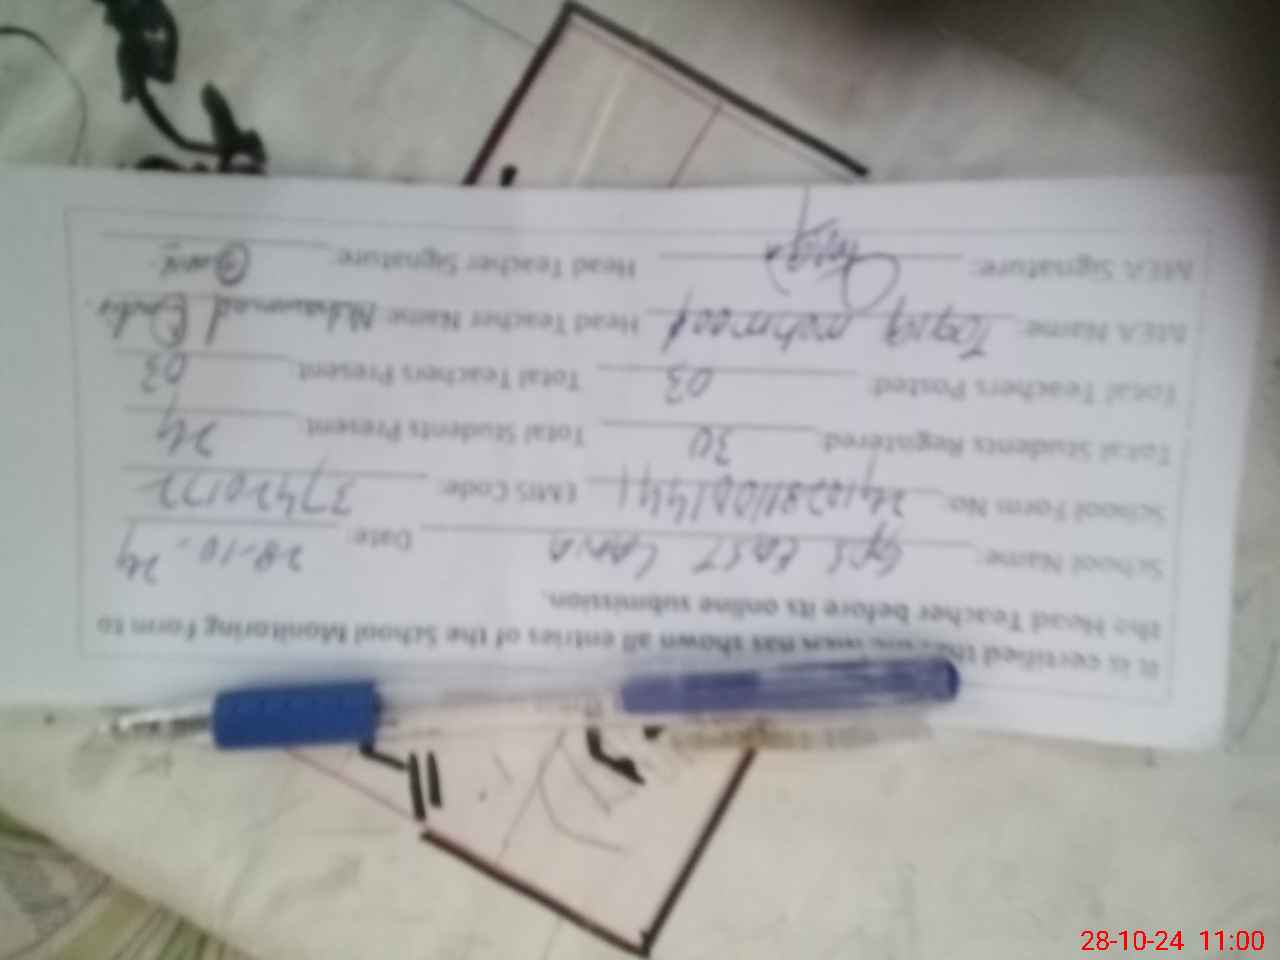 It is certified that the MEA has shown all entries of the School Monitoring Form to
the Head Teacher before its online submission.
School Name: GPS EAST Date: 28-10-24
School Form No. EMIS Code: 37420177
Total Students Registered: 30 Total Students Present: 24
Total Teachers Posted: 03 Total Teachers Present: 03
MEA Name: Tariq mahmood Head Teacher Name: Muhammad
MEA Signature: Head Teacher Signature:
28-10-24 11:00